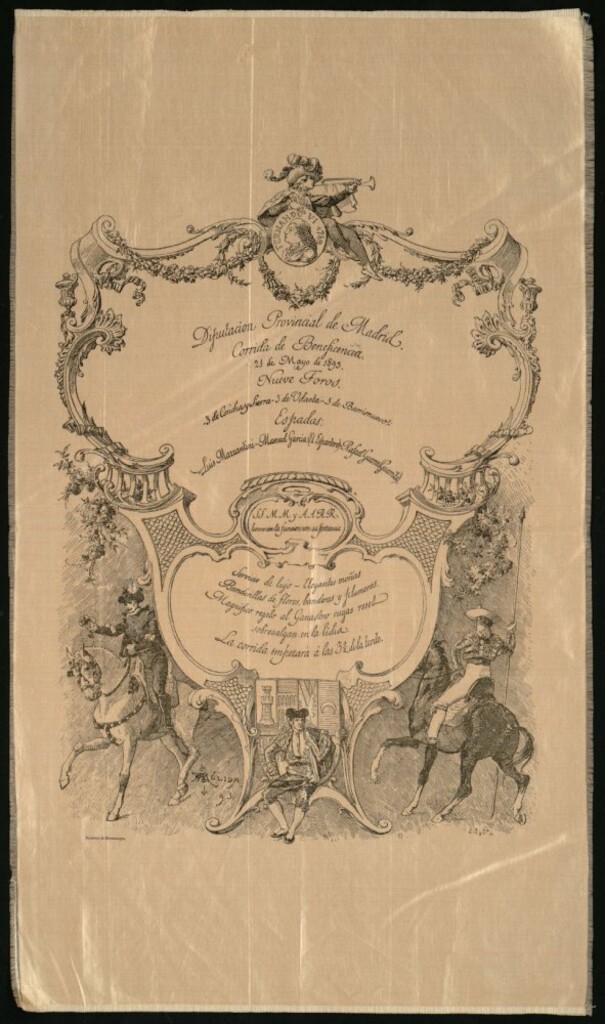 FERNANDO VI
Diputacion Provincial de Madrid.
Corrida de Beneficencia.
21 de Mayo de 1893.
Nueve Toros.
3 de Concha y Sierra - 3 de Udaeta - 3 de Barrionuevo
Espadas.
Luis Mazzantini - Manuel Garcia (El Espartero) - Rafael Guerra (Guerrita)
SS. M.M. y A.A.R.R.
honraran la funcion con su presencia
Servicio de lujo - Elegantes moñas
Banderillas de flores, banderas y plumeros
Magnifico regalo al Ganadero cuyas reses
sobresalgan en la lidia
La corrida empezará á las 3½ de la tarde.
93